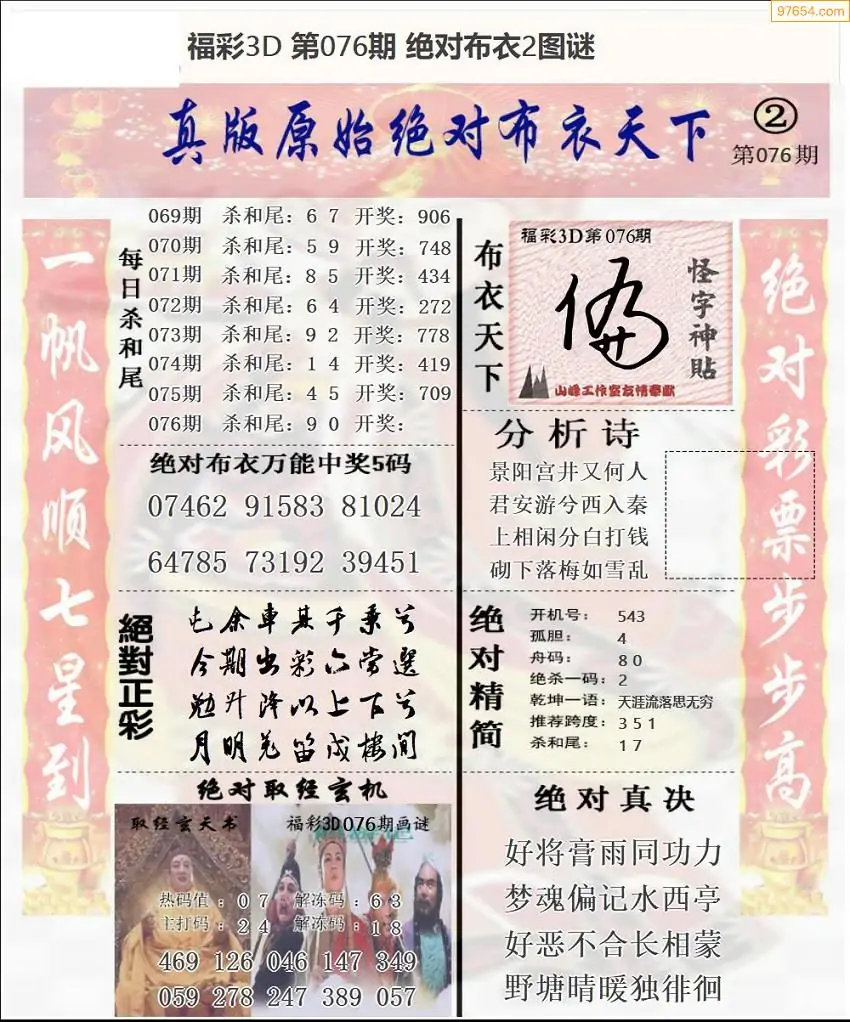 97654.com
福彩3D 第076期 绝对布衣2图谜
真版原始绝对布衣天下
②
第076期
一帆风顺七星到
每日杀和尾
069期 杀和尾：6 7 开奖：906
070期 杀和尾：5 9 开奖：748
071期 杀和尾：8 5 开奖：434
072期 杀和尾：6 4 开奖：272
073期 杀和尾：9 2 开奖：778
074期 杀和尾：1 4 开奖：419
075期 杀和尾：4 5 开奖：709
076期 杀和尾：9 0 开奖：
绝对布衣万能中奖5码
07462 91583 81024
64785 73192 39451
絕對正彩
今期出彩六常選
勉升降以上下兮
月明羌笛戍樓间
绝对取经玄机
取经玄天书
福彩3D076期画谜
热码值：0 7 解冻码：6 3
主打码：2 4 解冻码：1 8
469 126 046 147 349
059 278 247 389 057
布衣天下
福彩3D第076期
怪字神贴
山峰工作室友情奉献
分析诗
景阳宫井又何人
君安游兮西入秦
上相闲分白打钱
砌下落梅如雪乱
绝对精简
开机号： 543
孤胆： 4
舟码： 8 0
绝杀一码：2
乾坤一语：天涯流落思无穷
推荐跨度：3 5 1
杀和尾： 1 7
绝对真决
好将膏雨同功力
梦魂偏记水西亭
好恶不合长相蒙
野塘晴暖独徘徊
绝对彩票步步高